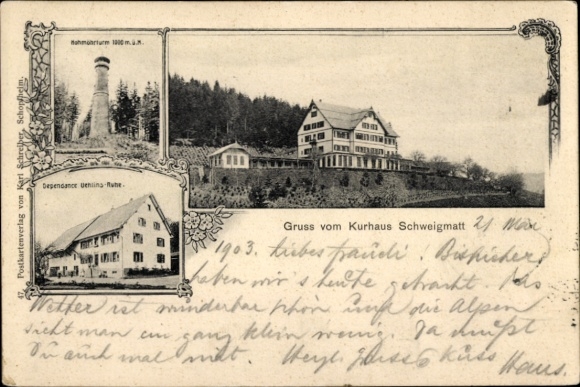 Hohmöhrturm 1000 m.ü.M.
Dependance Uehlins-Ruhe.
47. Postkartenverlag von Karl Schreiber, Schopfheim.
Gruss vom Kurhaus Schweigmatt 21 Mai
1903. Liebes Fraudi. Bis hieher
haben wir's heute gebracht. Das
Wetter ist wunderbar schön und die Alpen
sieht man ein ganz klein wenig. Da mußt
Du auch mal mit. Herzl. Gruss & Kuss
Hans.